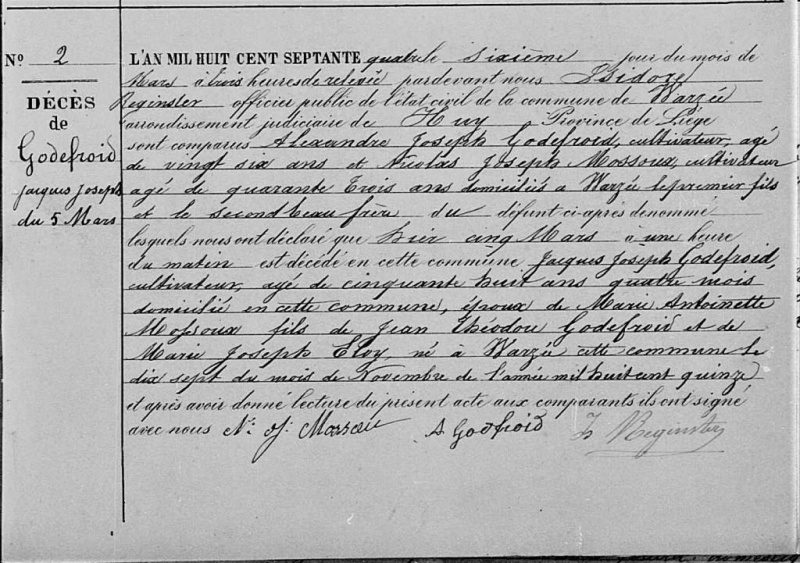 No 2
DÉCÈS
de
Godefroid
Jacques Joseph
du 5 Mars
L'AN MIL HUIT CENT SEPTANTE quatre le sixième jour du mois de
Mars à trois heures de relevée pardevant nous Isidore
Reginster officier public de l'état civil de la commune de Warzée
arrondissement judiciaire de Huy Province de Liège
sont comparus Alexandre Joseph Godefroid, cultivateur, agé
de vingt six ans et Nicolas Joseph Mossoux, cultivateur
agé de quarante trois ans domiciliés a Warzée le premier fils
et le second beau frère du défunt ci-après dénommé
lesquels nous ont déclaré que hier cinq Mars à une heure
du matin est décédé en cette commune Jacques Joseph Godefroid,
cultivateur, agé de cinquante huit ans quatre mois
domicilié en cette commune, époux de Marie Antoinette
Mossoux fils de Jean Théodore Godefroid et de
Marie Joseph Eloy, né à Warzée cette commune le
dix sept du mois de Novembre de l'année mil huit cent quinze
et après avoir donné lecture du présent acte aux comparants ils ont signé
avec nous N. J. Mossoux A Godfroid Is Reginster